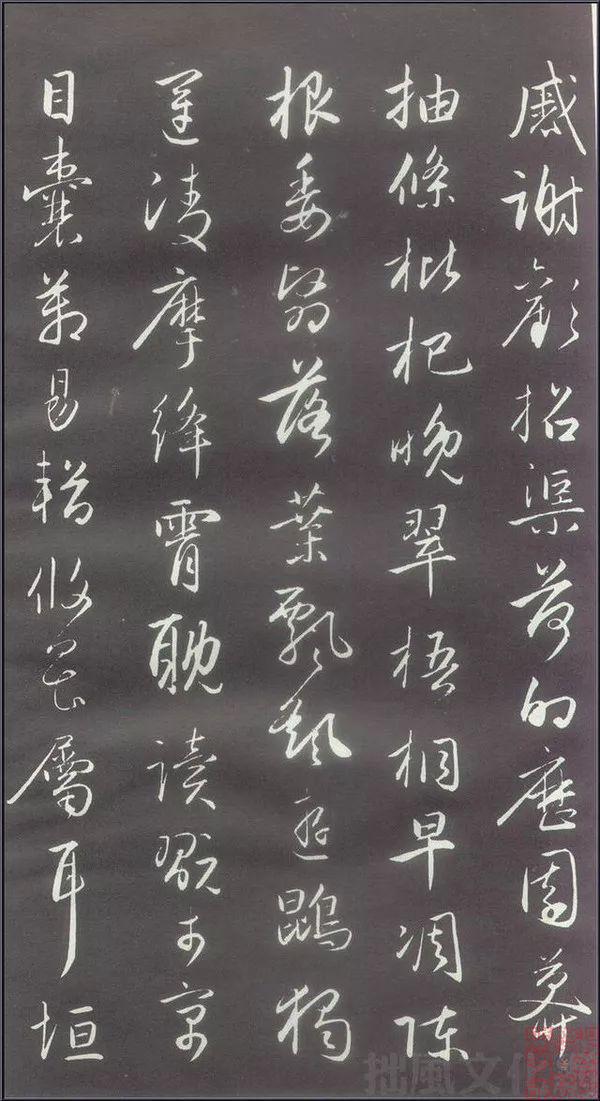 慼謝歡招渠荷的歷園莽
抽條枇杷晚翠梧桐早凋陳
根委翳落葉飄颻遊鵾獨
運凌摩絳霄耽讀翫市寓
目囊箱易輶攸畏屬耳垣
拙風文化